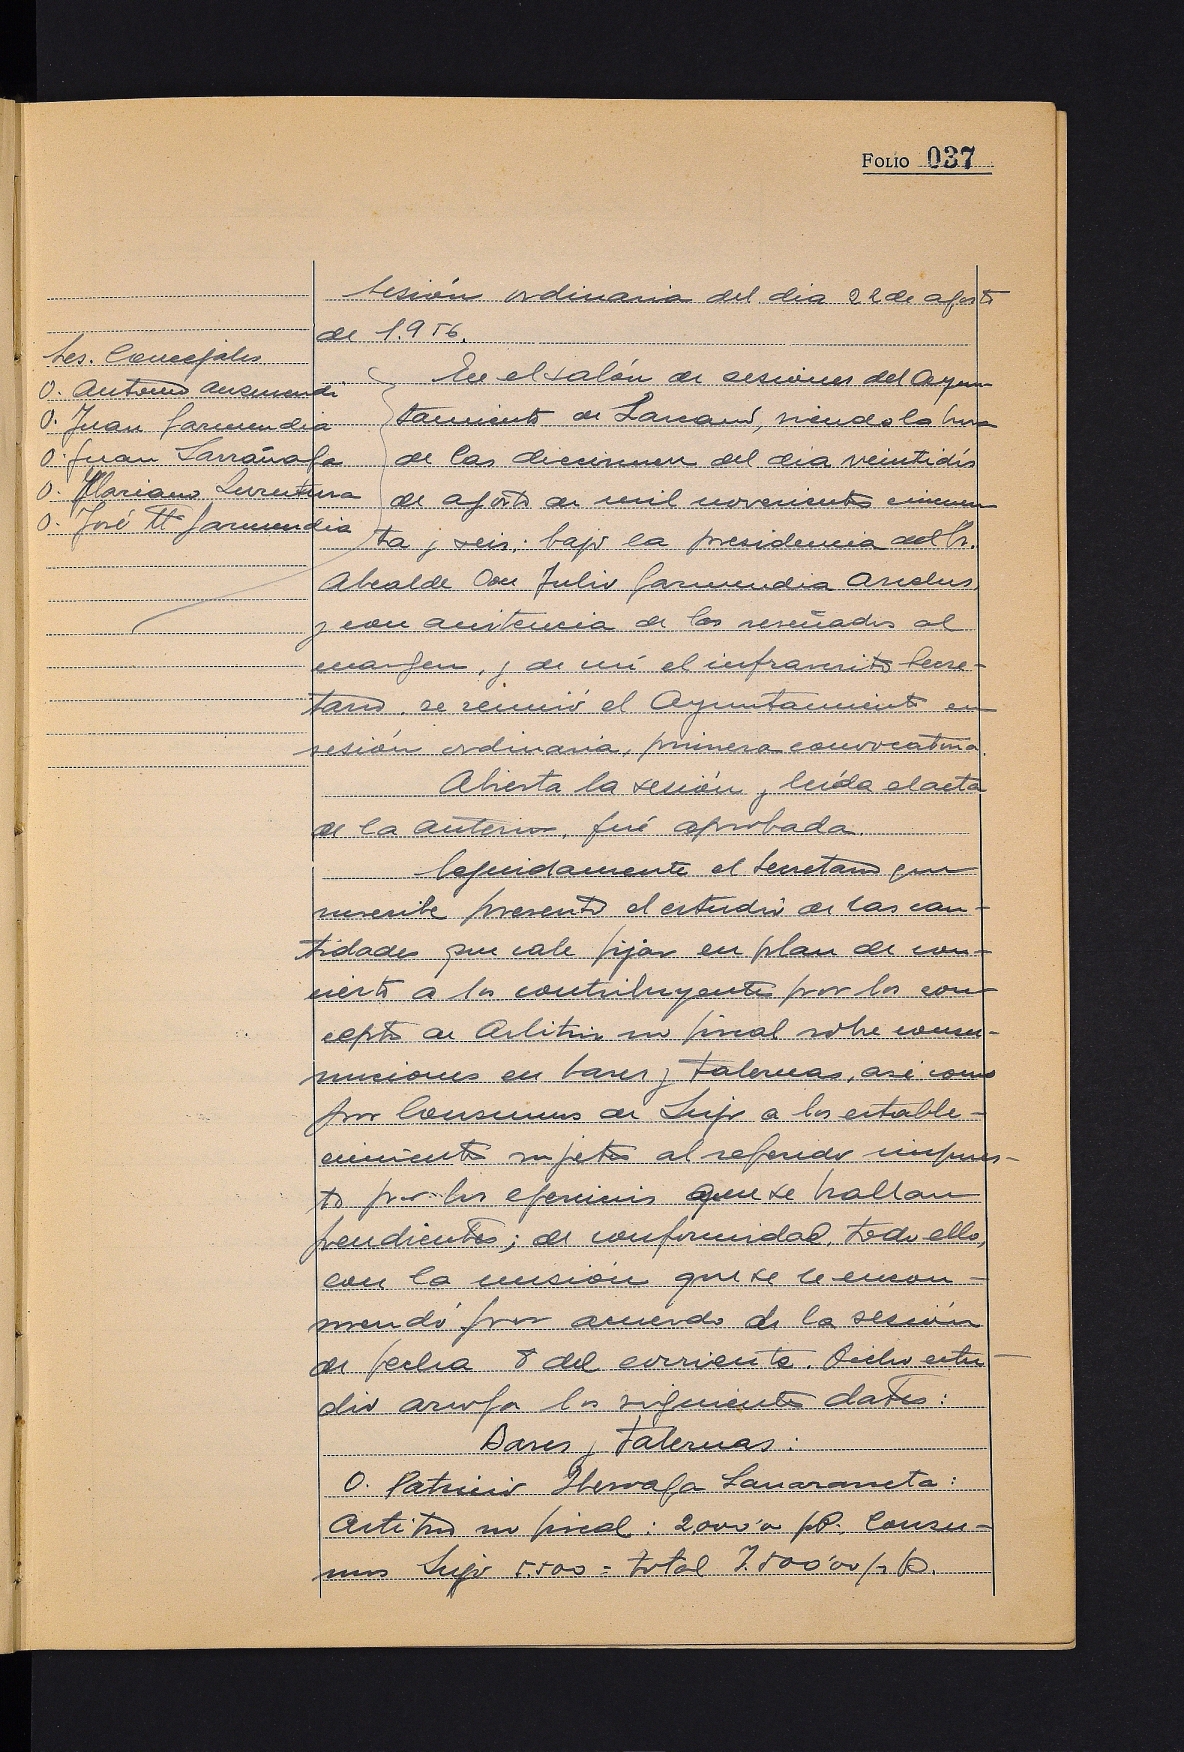 FOLIO 037
Sesión ordinaria del dia 22 de agosto
de 1.956.
Sres. Concejales
D. Antonio
D. Juan Garmendia
D. Juan Larrañaga
D. Mariano
D. José Mª Garmendia
En el salón de sesiones del Ayun-
tamiento de Lazcano, siendo la hora
de las diecinueve del dia veintidós
de agosto de mil novecientos cincuen
ta y seis; bajo la presidencia del Sr.
Alcalde Don Julio Garmendia
y con asistencia de los reseñados al
margen, y de mí el infrascrito Secre-
tario, se reunió el Ayuntamiento en
sesión ordinaria, primera convocatoria.
Abierta la sesión y leída el acta
de la anterior, fué aprobada.
Seguidamente el Secretario que
suscribe presentó el estudio de las can-
tidades que cabe fijar en plan de con-
cierto a los contribuyentes por los con-
ceptos de Arbitrio no fiscal sobre consu-
miciones en bares y tabernas, así como
por Consumos de Lujo a los estable-
cimientos sujetos al referido impues-
to por los ejercicios que se hallan
pendientes; de conformidad, todo ello,
con la misión que se le encon-
mendó por acuerdo de la sesión
de fecha 8 del corriente. Dicho estu-
dio arroja los siguientes datos:
Bares y Tabernas:
D. Patricio
Arbitrio no fiscal: 2000'00 pts. Consu-
mos Lujo 5.500 = total 7.500'00 pts.